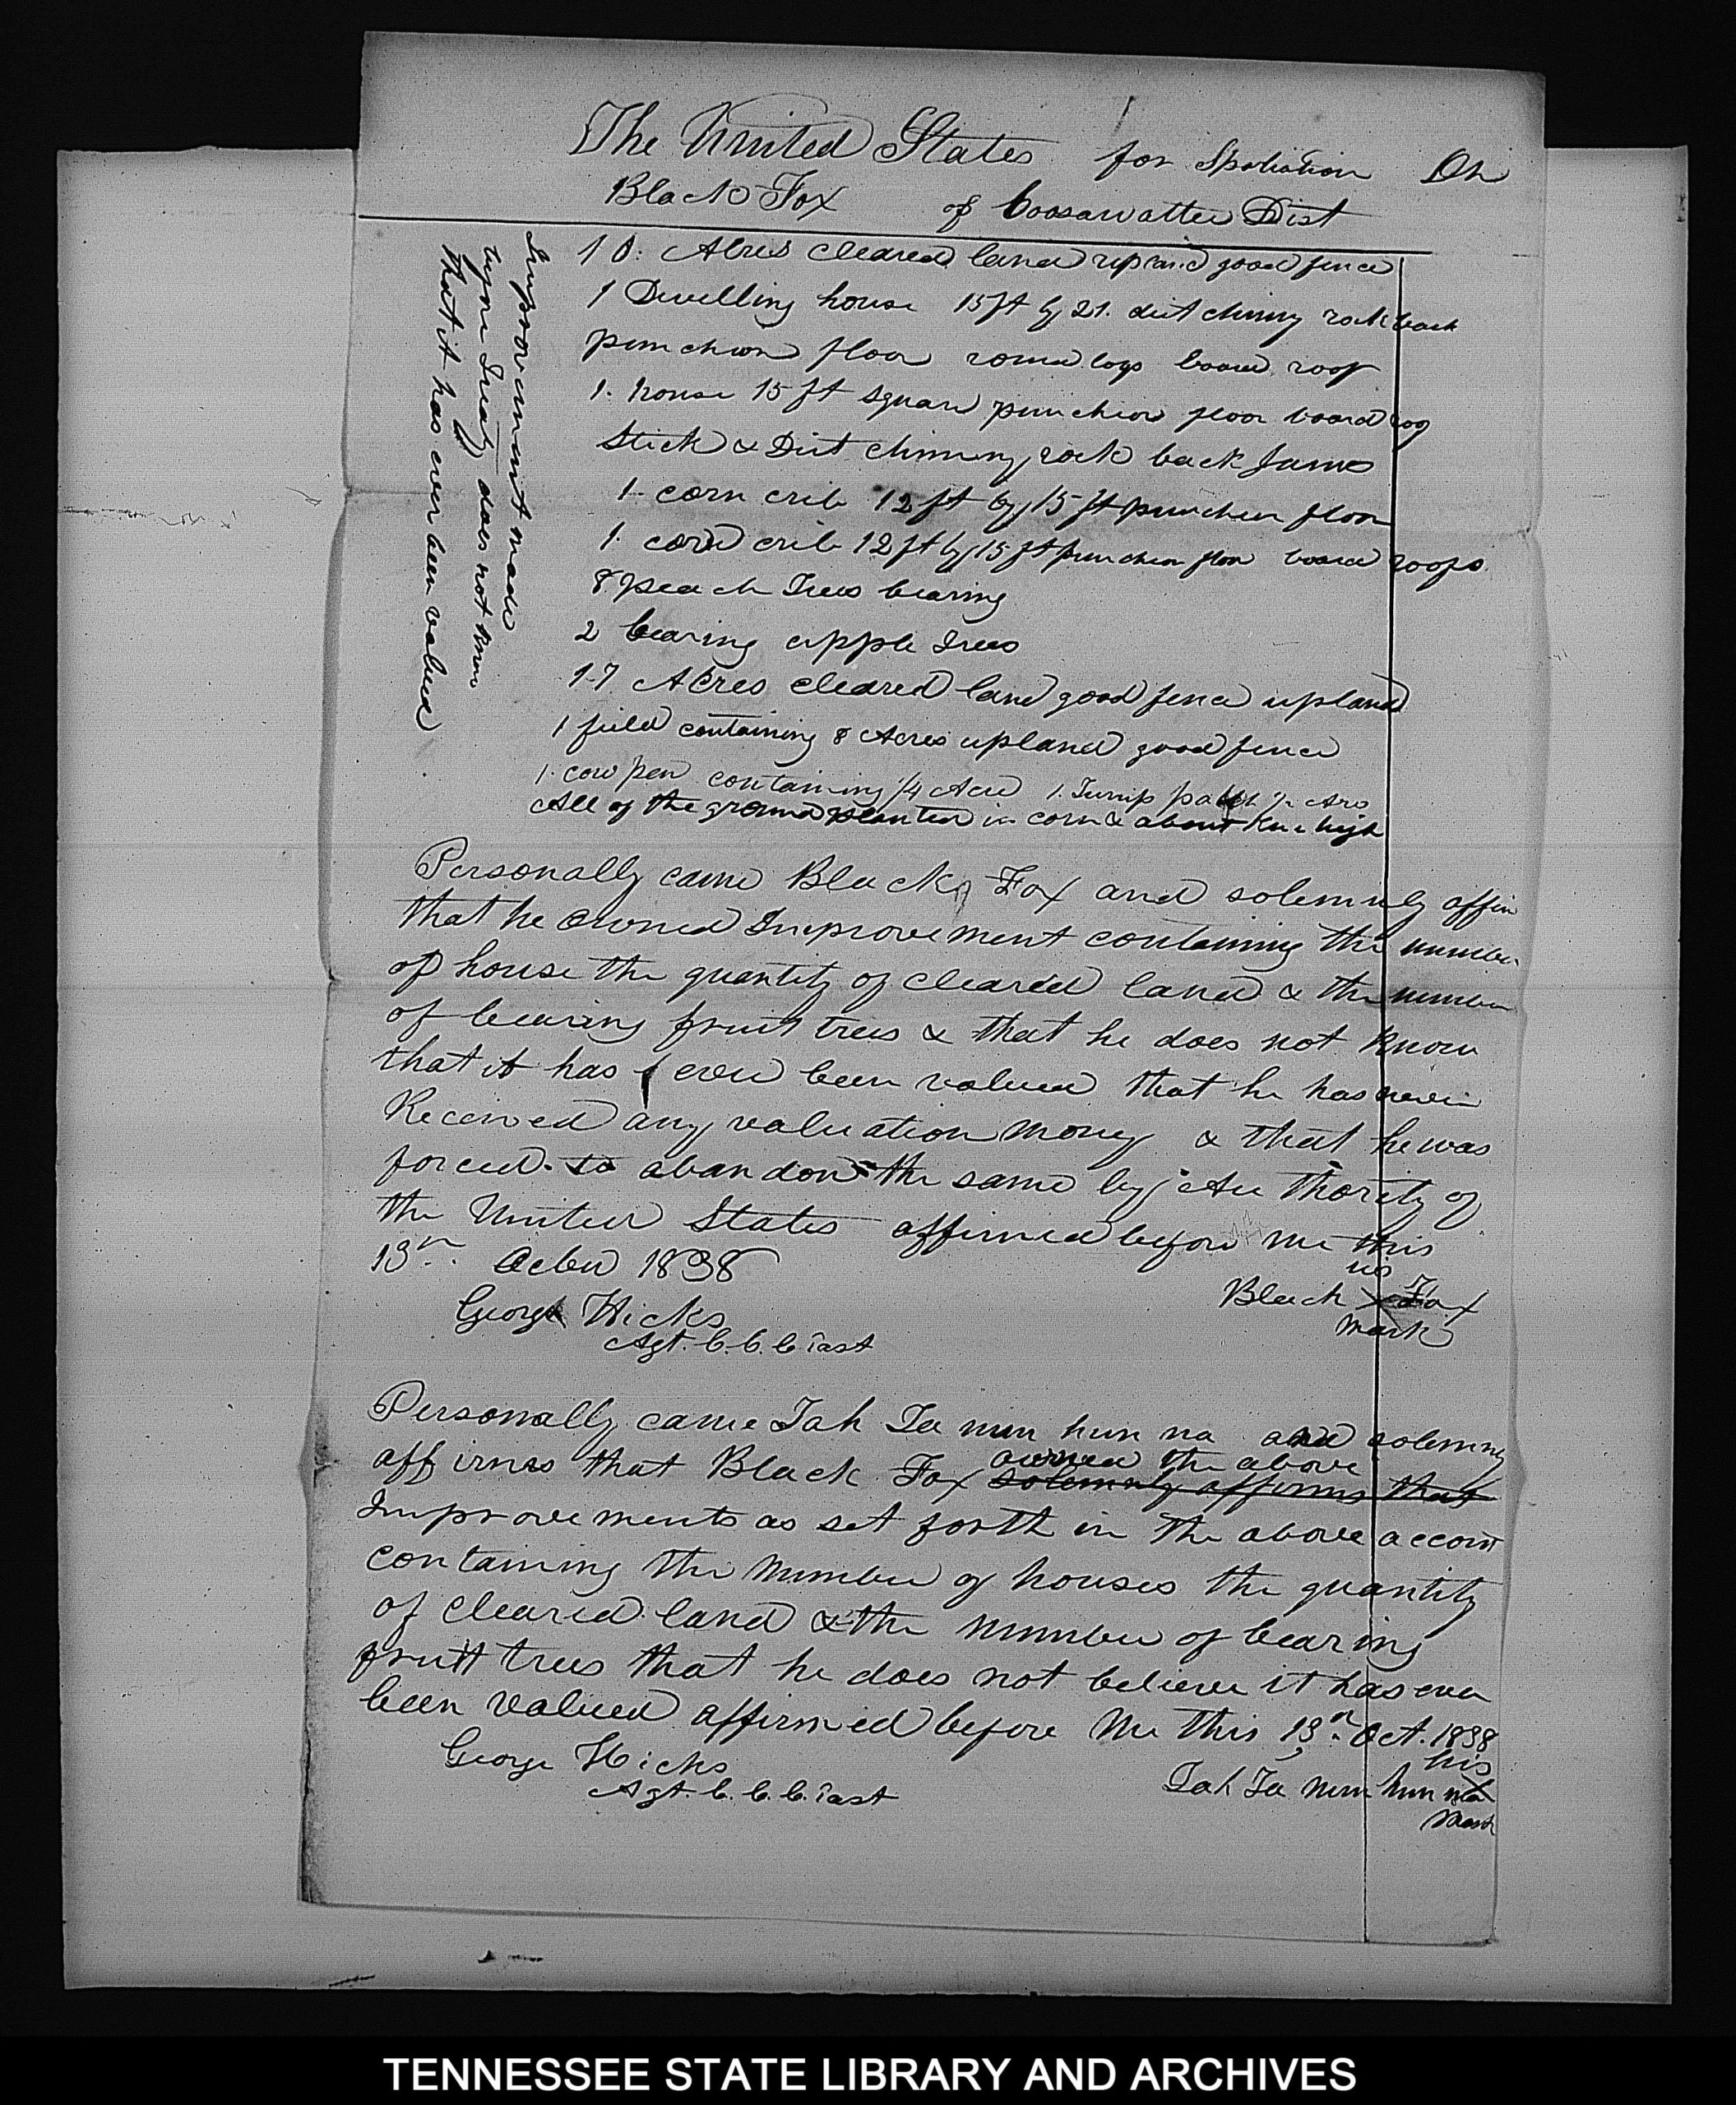 The United States for Spoliation Dr
Black Fox of Coosawattee Dist
10. Acres cleared land upland good fence
1 Dwelling house 15ft by 21. dirt chimny rock back
puncheon floor round logs board roof
1. house 15 ft square puncheon floor board roof
Stick & Dirt chimney rock back Jams
1- corn crib 12 ft by 15 ft puncheon floor
1. corn crib 12 ft by 15 ft puncheon floor board roofs
8 peach Trees bearing
2 bearing apple Trees
17 Acres cleared land good fence upland
1 field containing 8 Acres upland good fence
1. cow pen containing 1/4 Acre 1. Turnip patch 1/2 Acre
All of the ground planted in corn & about knee high
Improvement made
upon Treaty does not know
that it has ever been valued
Personally came Black Fox and solemnly affirm
that he owned Improvement containing the number
of house the quantity of cleared land & the number
of bearing fruit trees & that he does not know
that it has ever been valued that he has never
Received any valuation money & that he was
forced to abandon the same by Authority of
the United States affirmed before me this
13th Octbr 1838
his
George Hicks Black X Fox
Agt. C. C. C. East mark
Personally came Tah Te num hun na and solemnly
affirms that Black Fox owned the above solemnly affirms that
Improvements as set forth in the above account
containing the number of houses the quantity
of cleared land & the number of bearing
fruitt trees that he does not believe it has ever
been valued affirmed before me this 13th Oct. 1838
George Hicks his
Agt. C. C. C. East Tah Te num hun na X
mark
TENNESSEE STATE LIBRARY AND ARCHIVES